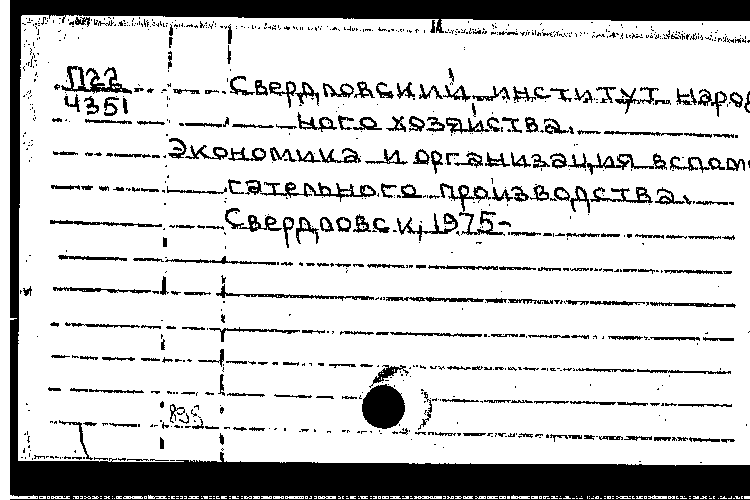 П22
4351
Свердловский институт народ
ного хозяйства.
Экономика и организация вспом
гательного производства.
Свердловск, 1975-